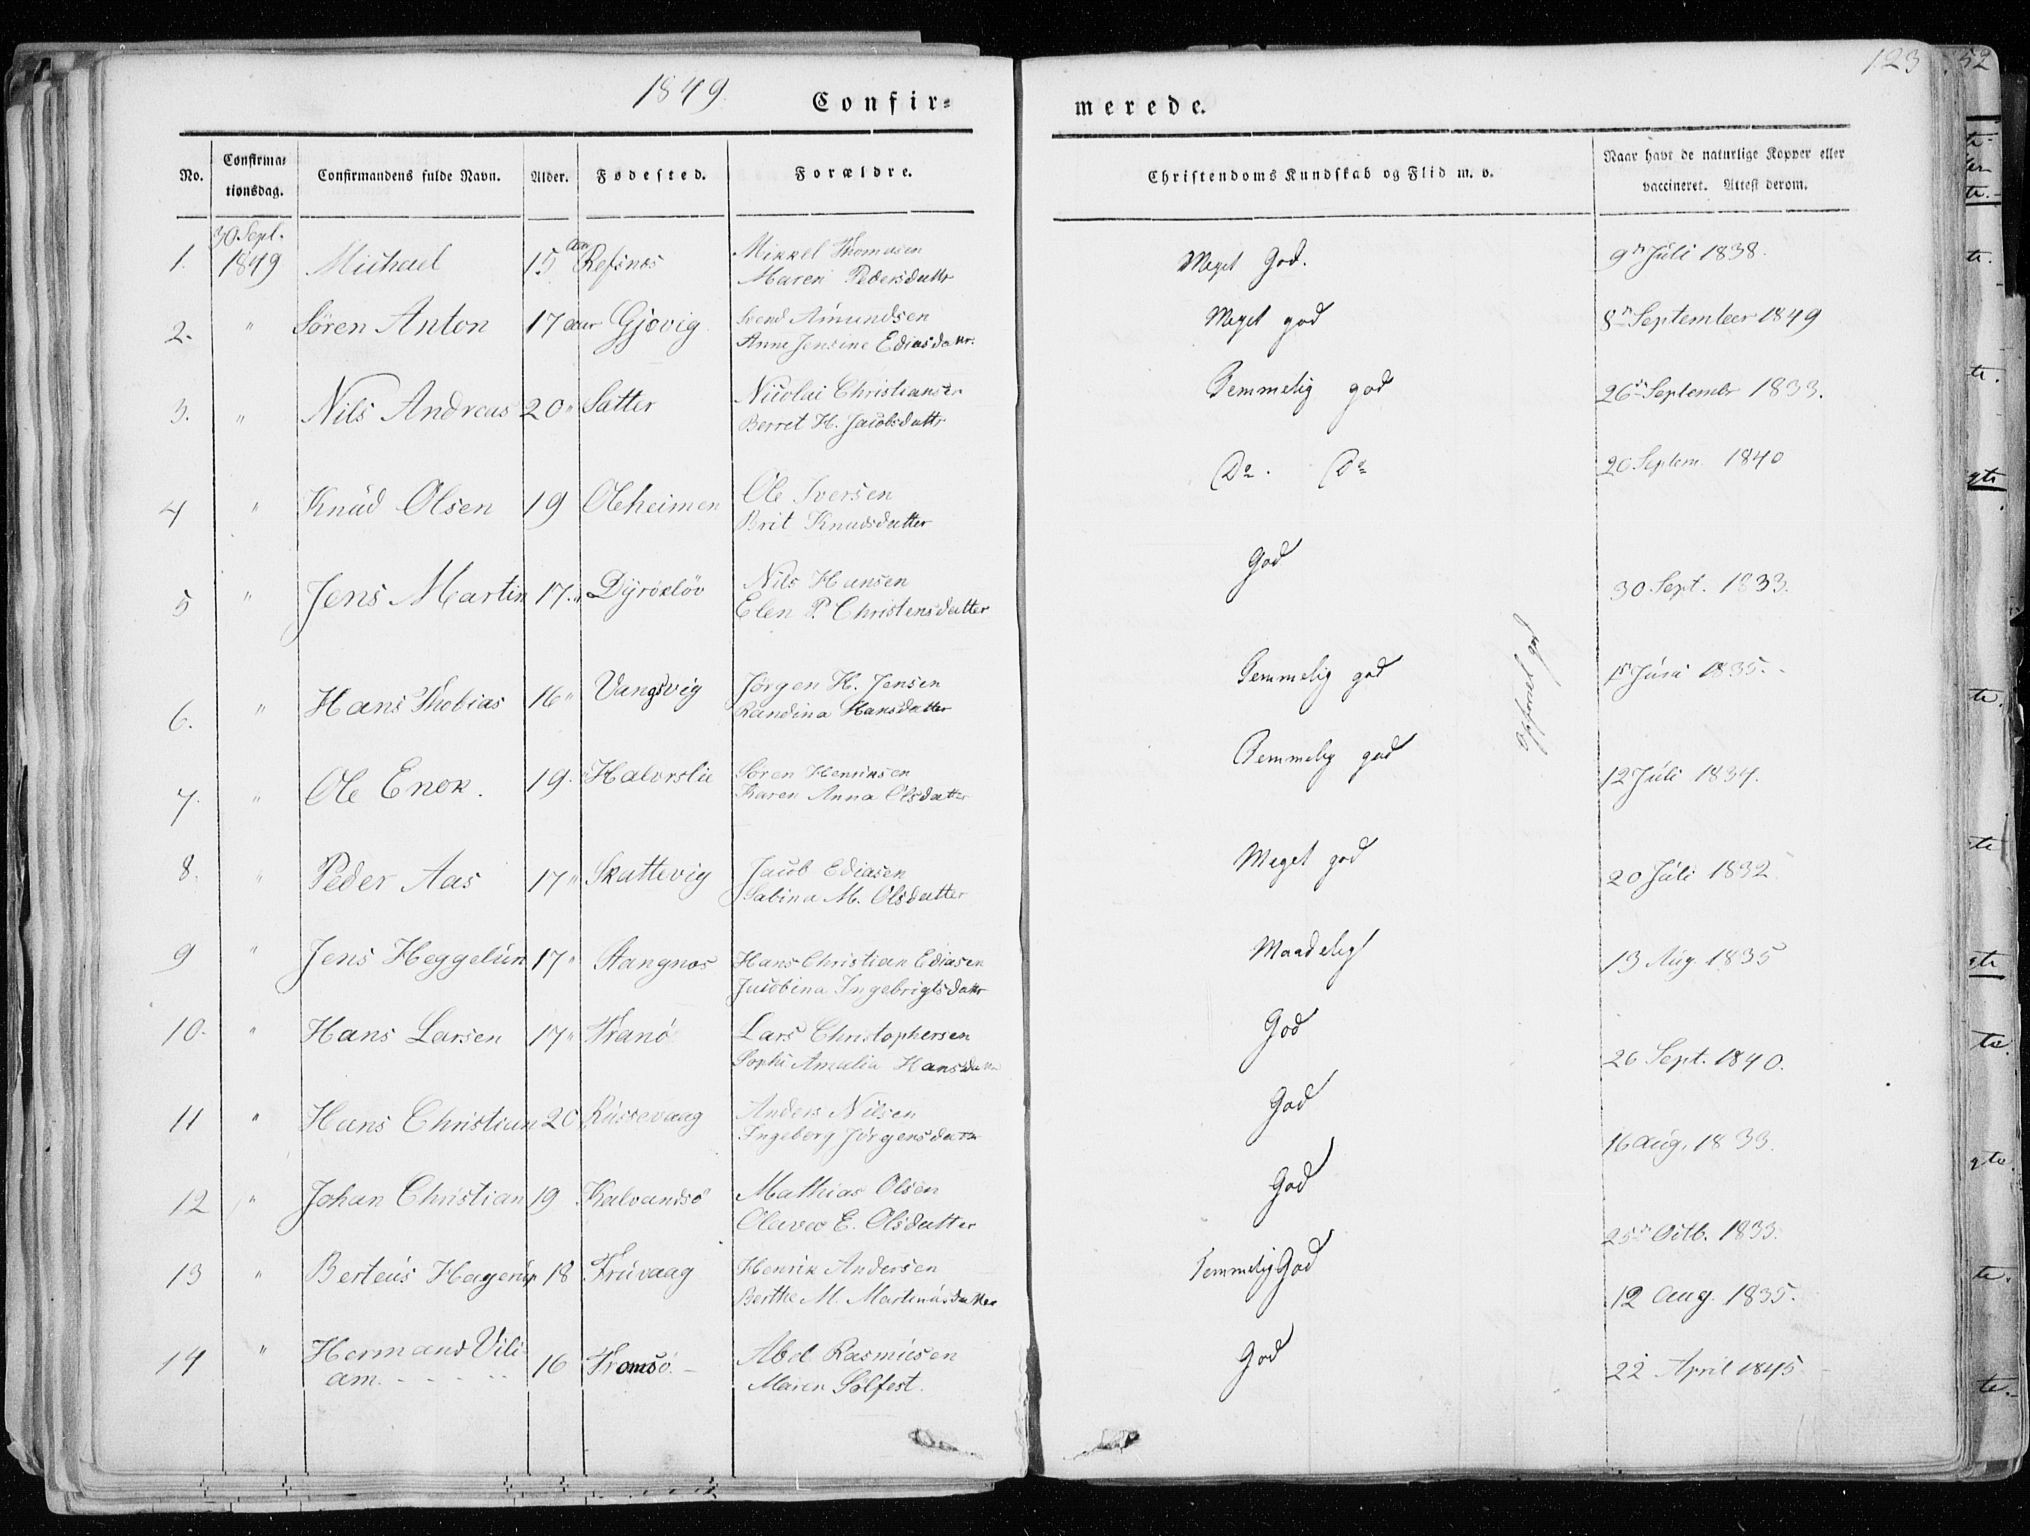 1849. Confir= merede. 123
No. Confirma= tionsdag. Confirmandens fulde Navn. Alder. Fødested. Forældre. Christendoms Kundskab og Flid m. v. Naar havt de naturlige Kopper eller vaccineret. Attest derom.
1. 30 Sept. 1849 Michael 15 aar Refsnes Mikkel Thomasen Meget God. 9n Juli 1838.
Maren Pedersdattr
2. " Sören Anton 17 aar Gjøvig Svend Amundsen Meget god 8n September 1849
Anne Jensine Ediasdattr.
3. " Nils Andreas 20 " Satter Nicolai Christiansen Temmelig god 26n Septembr 1833.
Berret H. Jacobsdattr
4 " Knud Olsen 19 Oleheimen Ole Iversen Do. Do 20 Septem. 1840
Brit Knudsdatter
5 " Jens Martin 17. " Dyrøkløv Nils Hansen God 30 Sept. 1833.
Elen P. Christensdatter
6. " Hans Thobias 16 " Vangsvig Jørgen H. Jensen Temmelig god 1835.
Randina Hansdatter
7. " Ole Enok. 19. " Halvorslie Søren Henriksen Temmelig god 12 Juli 1834.
Karen Anna Olsdatter
8. " Peder Aas 17 " Skattevig Jacob Ediasen Meget god 20 Juli 1832
Sabina M. Olsdatter
9 " Jens Heggelun 17 " Stangnes Hans Christian Ediasen Maadelig 13 Aug. 1835
Jacobina Ingebrigtsdattr
10. " Hans Larsen 17 " Tranö Lars Christophersen God 26 Sept. 1840.
Sophi Amalia Hansdatter
11 " Hans Christian 20 Russevaag Anders Nilsen God 16 aug. 1833.
Ingeberg Jørgensdatter
12 " Johan Christian 19 Kalvandsö Mathias Olsen God 25n Octb. 1833.
E. Olsdatter
13 " Berteus Hagerup 18 Truvaag Henrik Andersen Temmelig God 12 aug. 1835.
Berthe M. Martinusdatter
14 " Hermand Vili- 16 Tromsö. Abel Rasmusen God 22 April 1845
am. Maren Solfest.